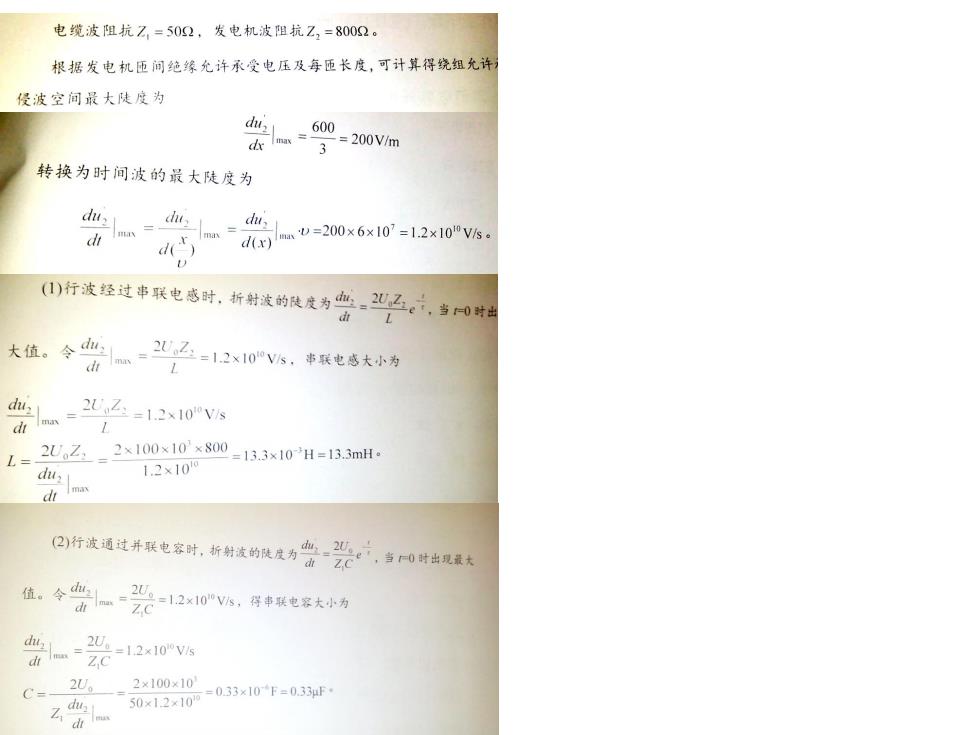 电缆波阻抗Z₁ = 50Ω，发电机波阻抗Z₂ = 800Ω。
根据发电机匝间绝缘允许承受电压及每匝长度，可计算得绕组允许
侵波空间最大陡度为
du₂'/dx |max = 600/3 = 200V/m
转换为时间波的最大陡度为
du₂'/dt |max = du₂'/d(x/υ) |max = du₂'/d(x) |max ·υ =200×6×10⁷ =1.2×10¹⁰ V/s。
(1)行波经过串联电感时，折射波的陡度为 du₂'/dt = 2U₀Z₂/L e^(-t/τ)，当 t=0 时出
大值。令 du₂'/dt |max = 2U₀Z₂/L =1.2×10¹⁰ V/s，串联电感大小为
du₂'/dt |max = 2U₀Z₂/L =1.2×10¹⁰ V/s
L = 2U₀Z₂/(du₂'/dt |max) = 2×100×10³×800/1.2×10¹⁰ =13.3×10⁻³H =13.3mH。
(2)行波通过并联电容时，折射波的陡度为 du₂'/dt = 2U₀/Z₁C e^(-t/τ)，当 t=0 时出现最大
值。令 du₂'/dt |max = 2U₀/Z₁C =1.2×10¹⁰ V/s，得串联电容大小为
du₂'/dt |max = 2U₀/Z₁C =1.2×10¹⁰ V/s
C = 2U₀/(Z₁ du₂'/dt |max) = 2×100×10³/50×1.2×10¹⁰ =0.33×10⁻⁶F = 0.33μF。